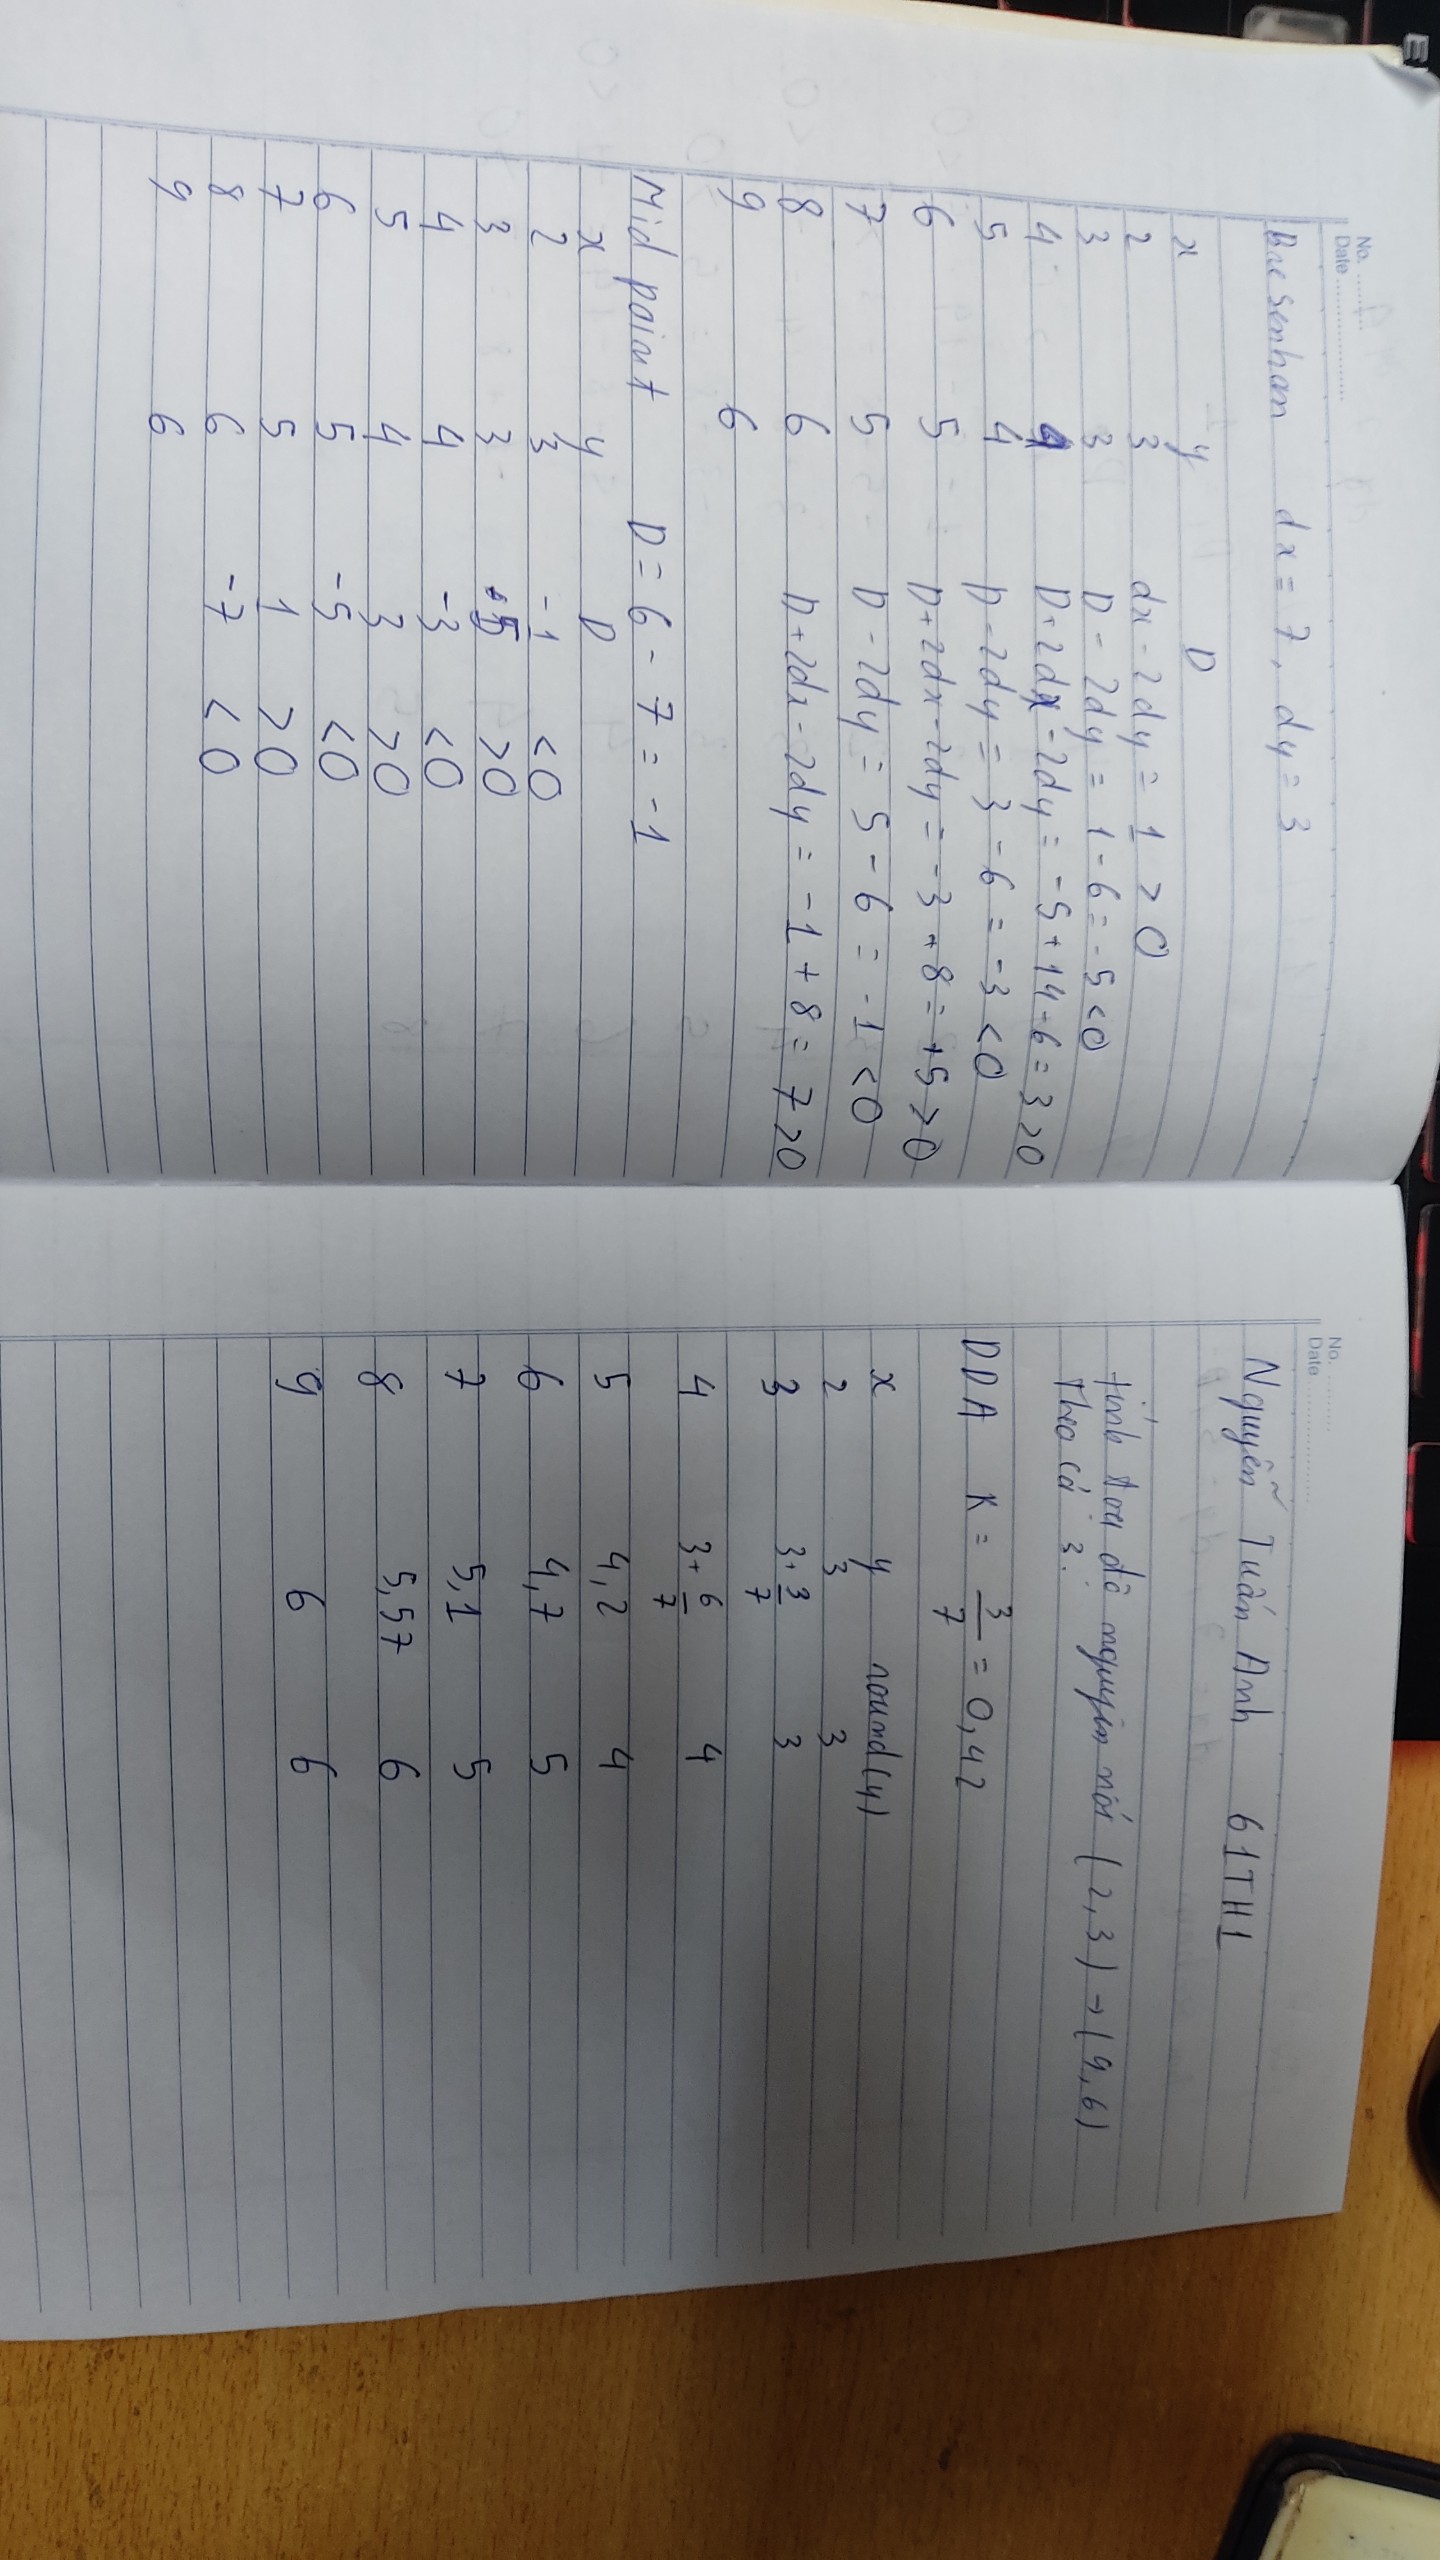 No. ..........
Date ....................
Bresenham dx = 7, dy = 3
x y D
2 3 dx - 2dy = 1 > 0
3 3 D - 2dy = 1 - 6 = -5 < 0
4 4 D + 2dx - 2dy = -5 + 14 - 6 = 3 > 0
5 4 D - 2dy = 3 - 6 = -3 < 0
6 5 D + 2dx - 2dy = -3 + 8 = +5 > 0
7 5 D - 2dy = 5 - 6 = -1 < 0
8 6 D + 2dx - 2dy = -1 + 8 = 7 > 0
9 6
Mid point D = 6 - 7 = -1
x y D
2 3 -1 < 0
3 3 5 > 0
4 4 -3 < 0
5 4 3 > 0
6 5 -5 < 0
7 5 1 > 0
8 6 -7 < 0
9 6
No. ..........
Date ....................
Nguyễn Tuấn Anh 61TH1
tính toạ độ nguyên nối (2,3) → (9,6)
Theo cả 3:
DDA K = 3/7 = 0,42
x y round(y)
2 3 3
3 3+3/7 3
4 3+6/7 4
5 4,2 4
6 4,7 5
7 5,1 5
8 5,57 6
9 6 6